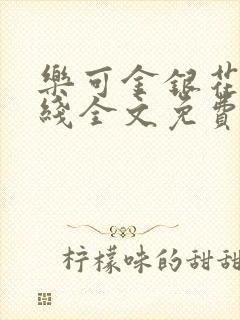 樂可金銀花
綫全文免費
柠檬味的甜甜